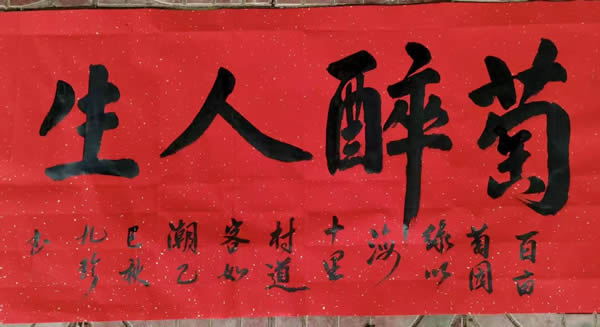 菊醉人生
百亩
菊园
绿以
海
十里
村道
客如
潮乙
巳秋
书